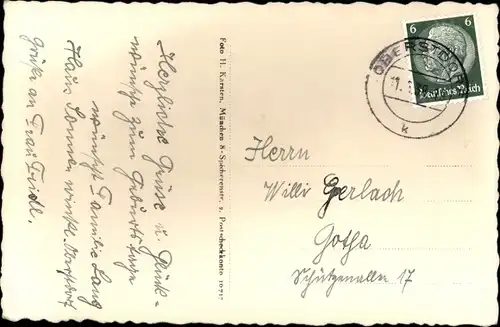 Herzliche Grüsse u. Glück-
wünsche zum Geburtstage
wünscht Familie Lang
Haus Sonnenwinkel.
Grüße an Frau Friedl.
Foto H. Karsten, München 8
Postscheckkonto
6 6
Deutsches Reich
OBERSTDORF
k
Herrn
Willi Gerlach
Gotha
Schützenallee 17